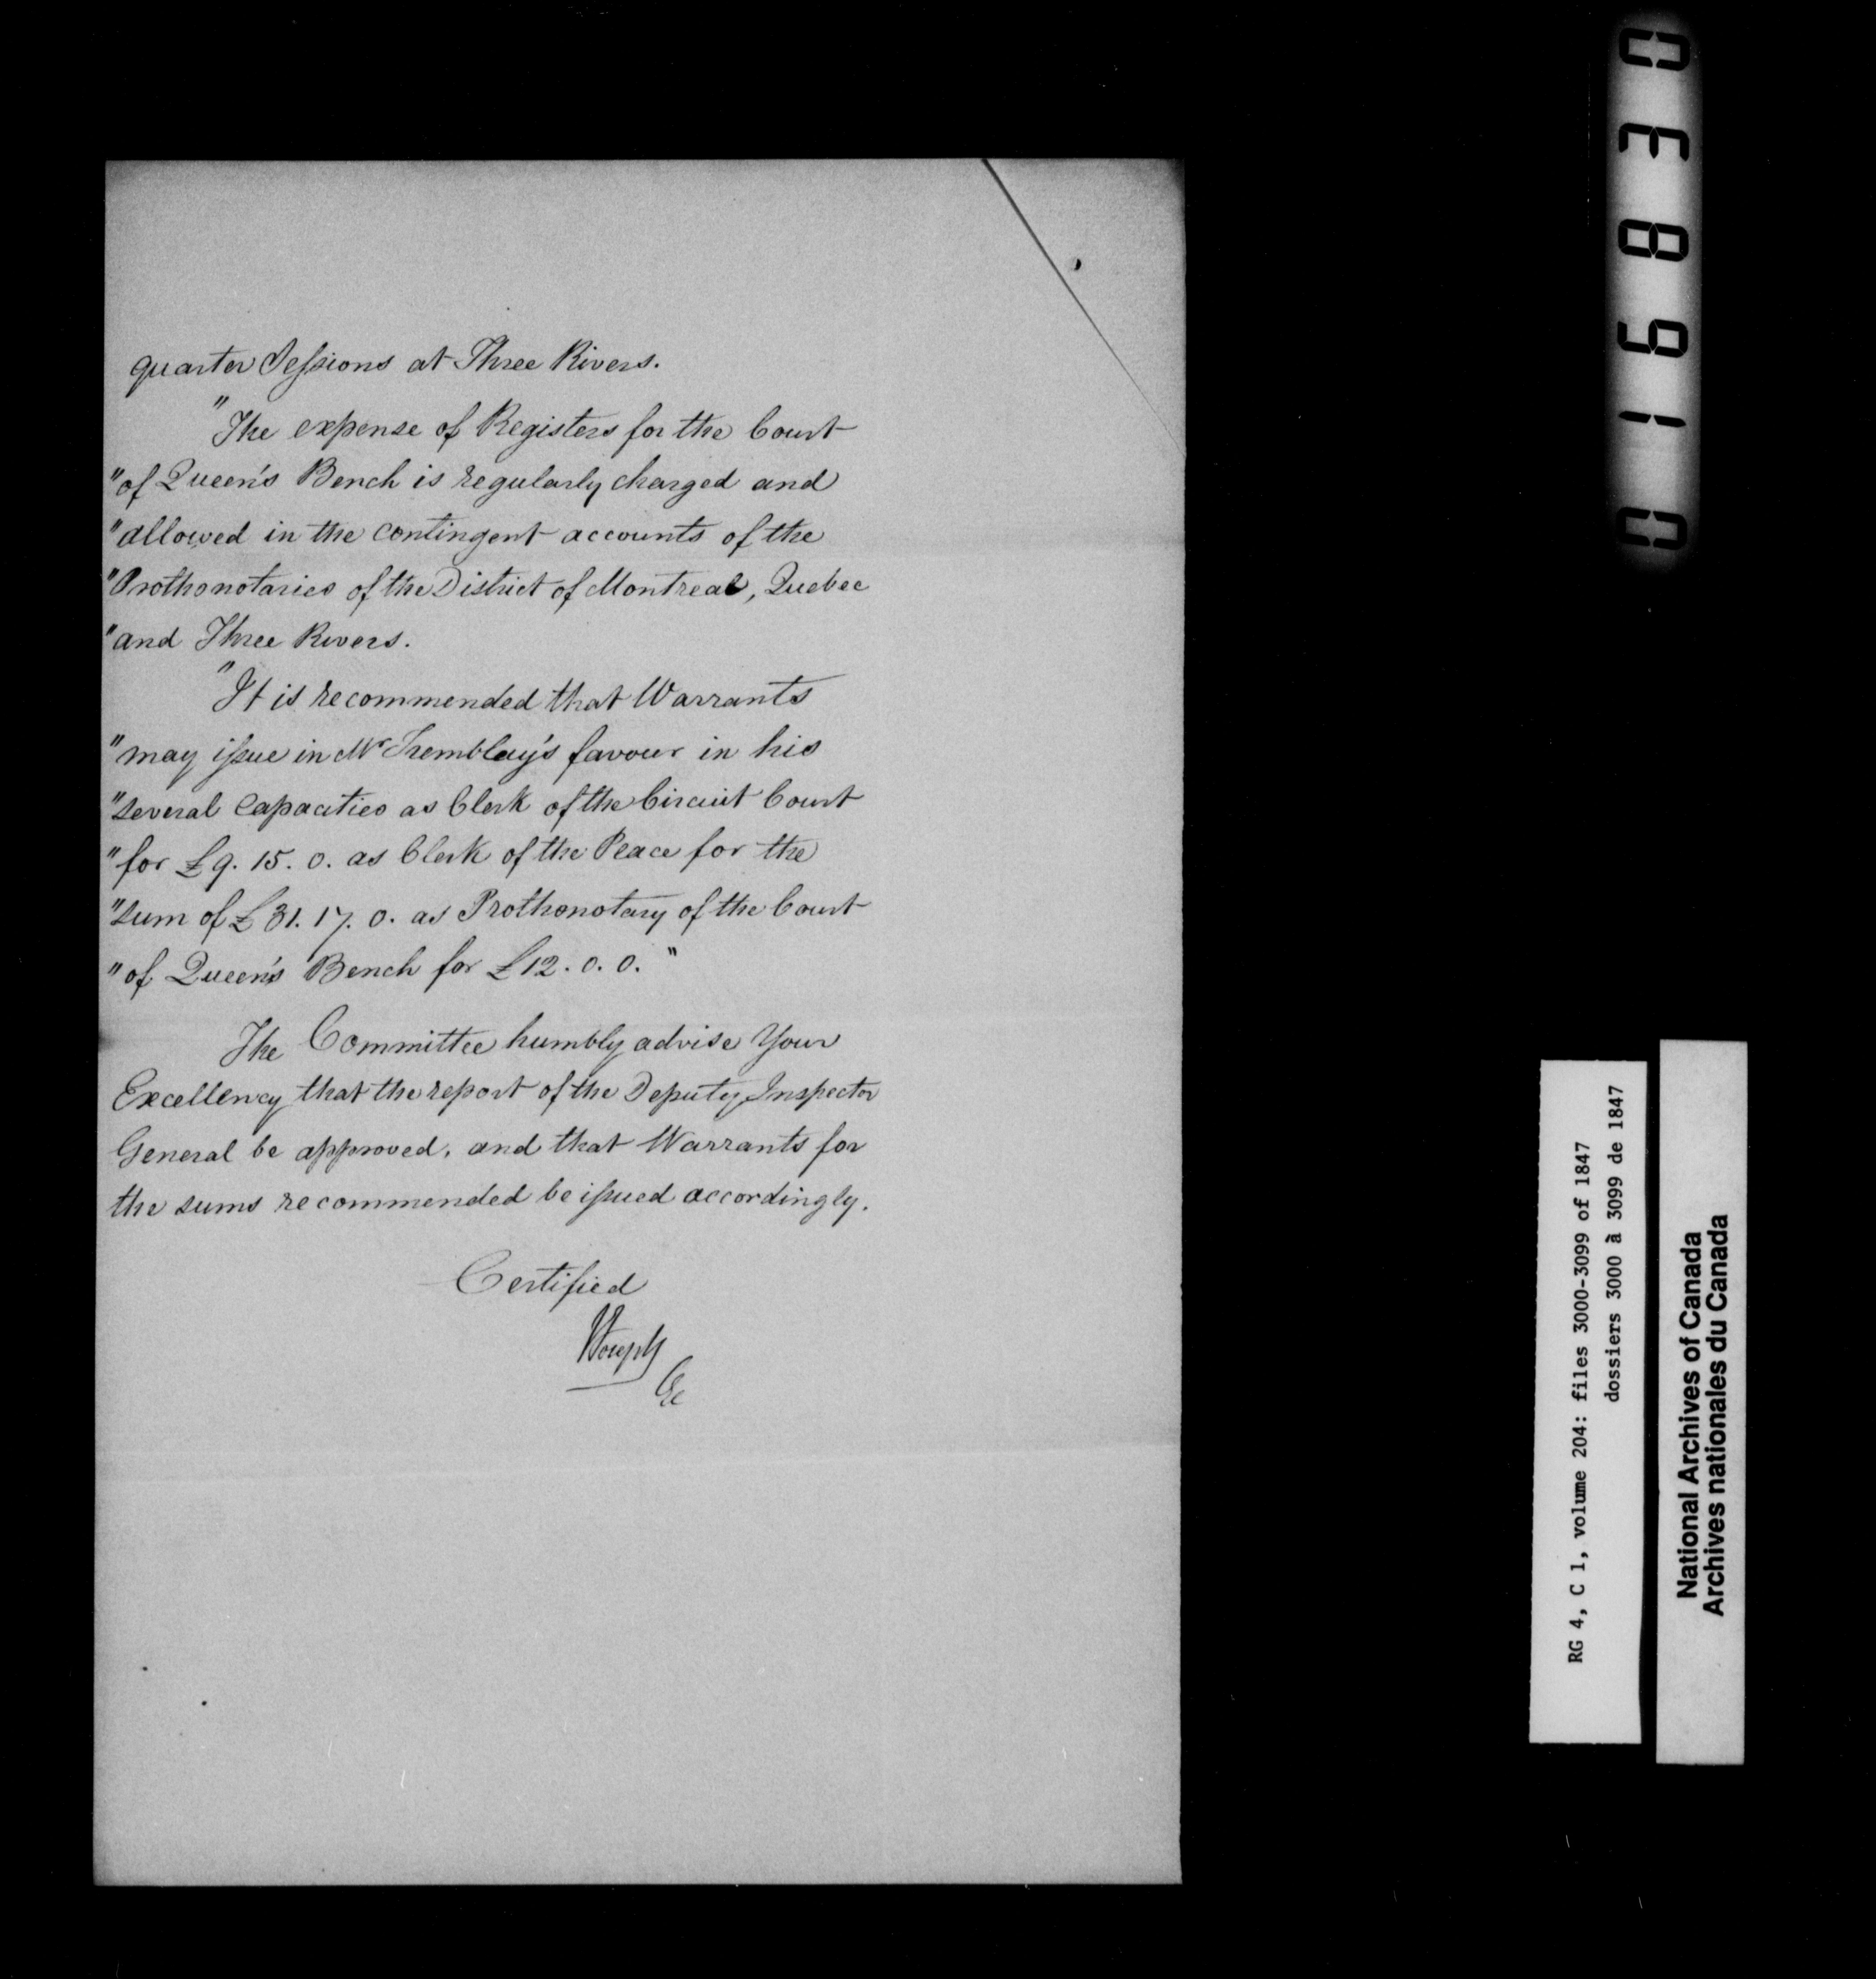 quarter Sessions at Three Rivers.
"The expense of Registers for the Court
"of Queen's Bench is regularly charged and
"allowed in the contingent accounts of the
"Prothonotaries of the District of Montreal, Quebec
"and Three Rivers.
"It is recommended that Warrants
"may issue in Mr Tremblay's favour in his
"several Capacities as Clerk of the Circuit Court
"for £9. 15. 0. as Clerk of the Peace for the
"sum of £31. 17. 0. as Prothonotary of the Court
"of Queen's Bench for £12. 0. 0."
The Committee humbly advise Your
Excellency that the report of the Deputy Inspector
General be approved, and that Warrants for
the sums recommended be issued accordingly.
Certified
016830
RG 4, C 1, volume 204: files 3000-3099 of 1847
dossiers 3000 à 3099 de 1847
National Archives of Canada
Archives nationales du Canada